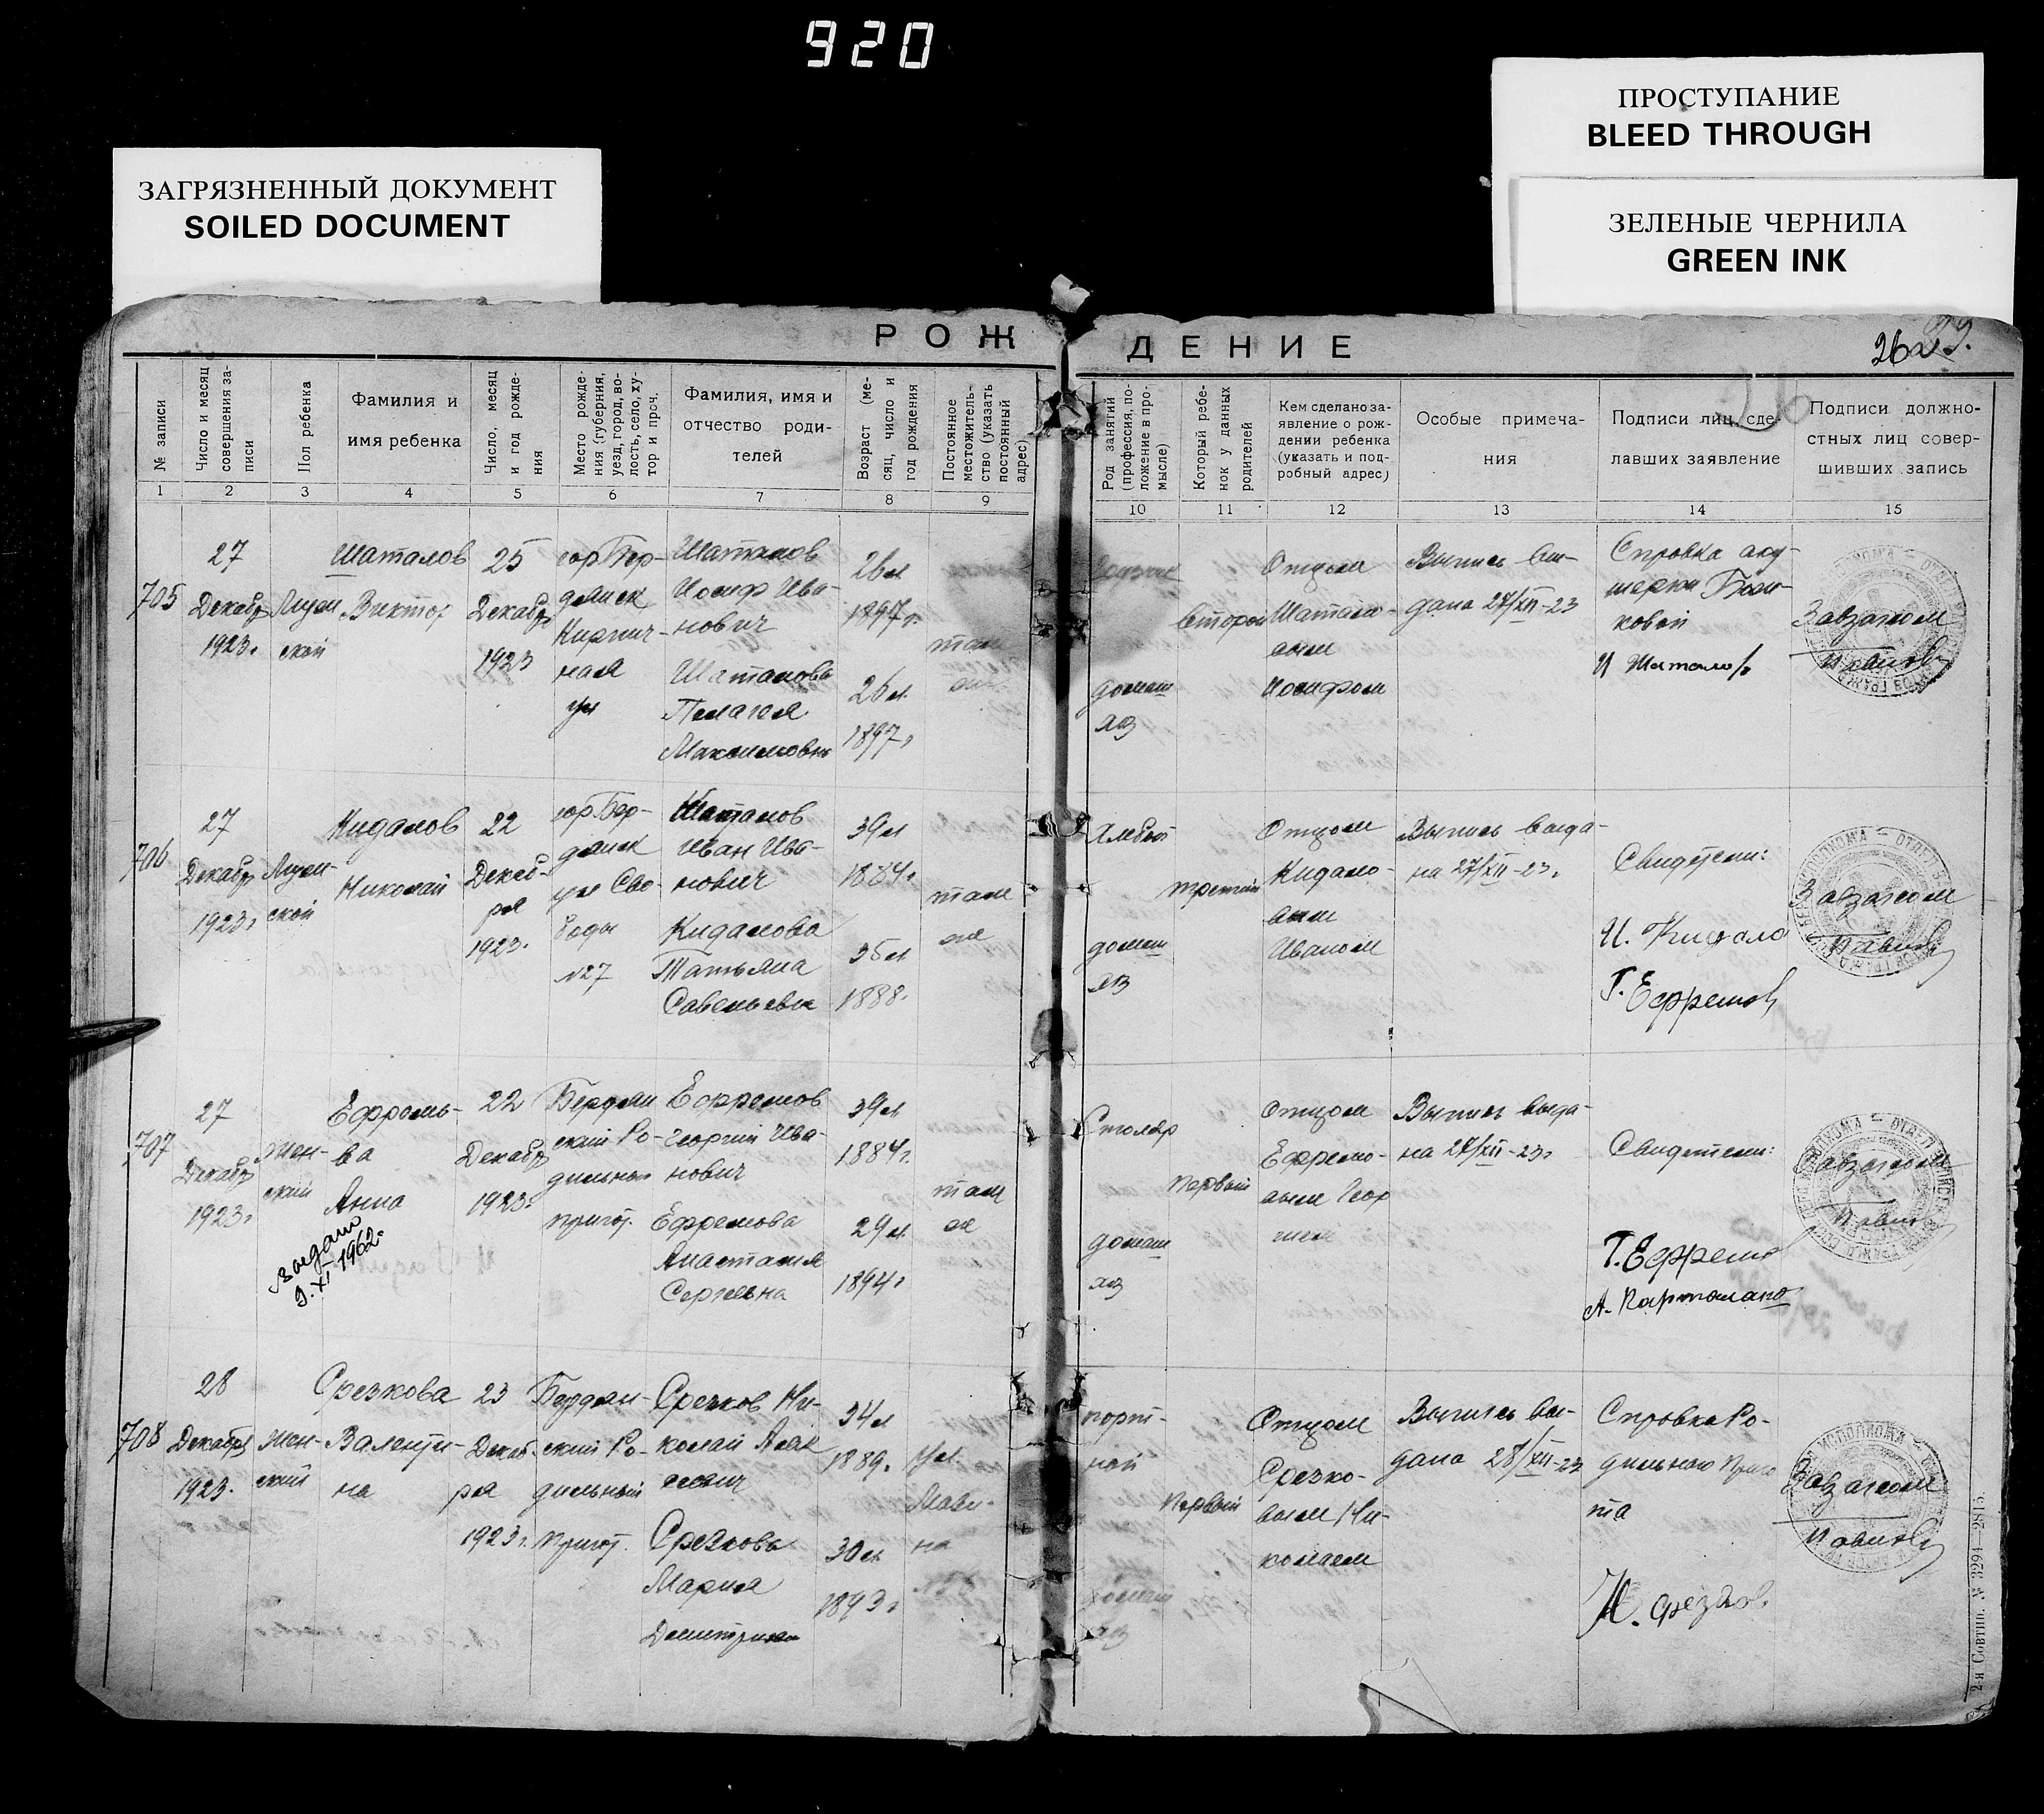 920
ПРОСТУПАНИЕ
BLEED THROUGH
ЗАГРЯЗНЕННЫЙ ДОКУМЕНТ
SOILED DOCUMENT
ЗЕЛЕНЫЕ ЧЕРНИЛА
GREEN INK
РОЖДЕНИЕ
№ записи
Число и месяц
совершения за-
писи
Пол ребенка
Фамилия и
имя ребенка
Число, месяц
и год рожде-
ния
Место рожде-
ния (губерния,
уезд, город, во-
лость, село, ху-
тор и проч.
Фамилия, имя и
отчество роди-
телей
Возраст (ме-
сяц, число и
год рождения
Постоянное
местожитель-
ство (указать
постоянный
адрес)
Род занятий
(профессия, по-
ложение в про-
мысле)
Который ребе-
нок у данных
родителей
Кем сделано за-
явление о рож-
дении ребенка
(указать и под-
робный адрес)
Особые примеча-
ния
Подписи лиц, сде-
лавших заявление
Подписи должно-
стных лиц совер-
шивших запись
1 2 3 4 5 6 7 8 9 10 11 12 13 14 15
705
27
Декабр
1923г.
Мужс
ской
Шаталов
Виктор
25
Декабр
1923
гор. Бер-
дянск
Кирпич-
ная
ул
Шаталов
Иосиф Ива-
нович
Шаталова
Пелагея
Максимовна
26 л
1897г.
26 л.
1897г
там
второй
домаш
хоз
Отцом
Шатало-
вым
Иосифом
Выпись вы-
дана 27/XII-23
Справка аку-
шерки
И Шаталов
Завзагсом
706
27
Декабр
1923г
ской
Кидалов
Николай
22
Декаб-
ря
1923.
гор. Бер-
дянск
ул Сво-
боды
№27
Шаталов
Иван Ива-
нович
Кидалова
Татьяна
Савельевна
39 л
1884г
35 л
1888.
там
же
домаш
хоз
третий
Отцом
Кидало-
вым
Иваном
Выпись выда-
на 27/XII-23.
Свидетели:
И. Кидало
Г. Ефремов
Завзагсом
707
27
Декабр
1923г
Жен-
ский
Ефремо-
ва
Анна
Выдано
9.XI 1962г
22
Декабр
1923г
Бердян
ский Ро-
дильный
приют.
Ефремов
Георгий Ива-
нович
Ефремова
Анастасия
Сергеевна
39 л
1884г.
29 л.
1894г
там
же
Столяр
домаш
хоз
первый
Отцом
Ефремо-
вым Геор
гием
Выпись выда-
на 27/XII-23г
Свидетели:
Г. Ефремов
Завзагсом
708
28
Декабря
1923.
Жен-
ский
Срезкова
Валенти-
на
23
Декаб-
ря
1923г.
Бердян-
ский Ро-
дильный
приют.
Срезков Ни-
колай
Срезкова
Мария
34 л
1889.
30 л
1893г
порт-
ной
хоз
Первый
Отцом
Срезко-
вым Ни-
колаем
Выпись вы-
дана 28/XII-23
Справка Ро-
дильного Прию
та
Н. Срезков.
Завзагсом
2-я Совтип. № 3294—2815.